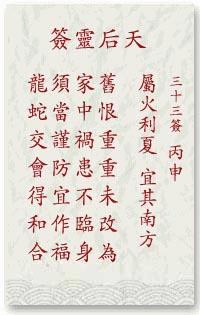 天后靈簽
三十三簽 丙申
屬火利夏 宜其南方
舊恨重重未改為
家中禍患不臨身
須當謹防宜作福
龍蛇交會得和合